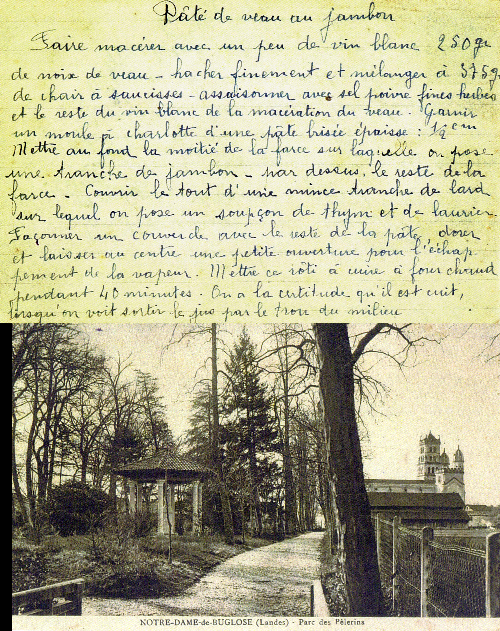 Pâté de veau au jambon
Faire macérer avec un peu de vin blanc 250 gr
de noix de veau - hacher finement et mélanger à 375 g
de chair à saucisses - assaisonner avec sel poivre fines herbes
et le reste du vin blanc de la macération du veau. Garnir
un moule à charlotte d'une pâte brisée épaisse : 1/2 cm
Mettre au fond la moitié de la farce sur laquelle on pose
une tranche de jambon - par dessus, le reste de la
farce. Couvrir le tout d'une mince tranche de lard
sur lequel on pose un soupçon de thym et de laurier.
Façonner un couvercle avec le reste de la pâte, dorer
et laisser au centre une petite ouverture pour l'échap
pement de la vapeur. Mettre ce rôti à cuire à four chaud
pendant 40 minutes. On a la certitude qu'il est cuit,
lorsqu'on voit sortir le jus par le trou du milieu
NOTRE-DAME-de-BUGLOSE (Landes) - Parc des Pèlerins